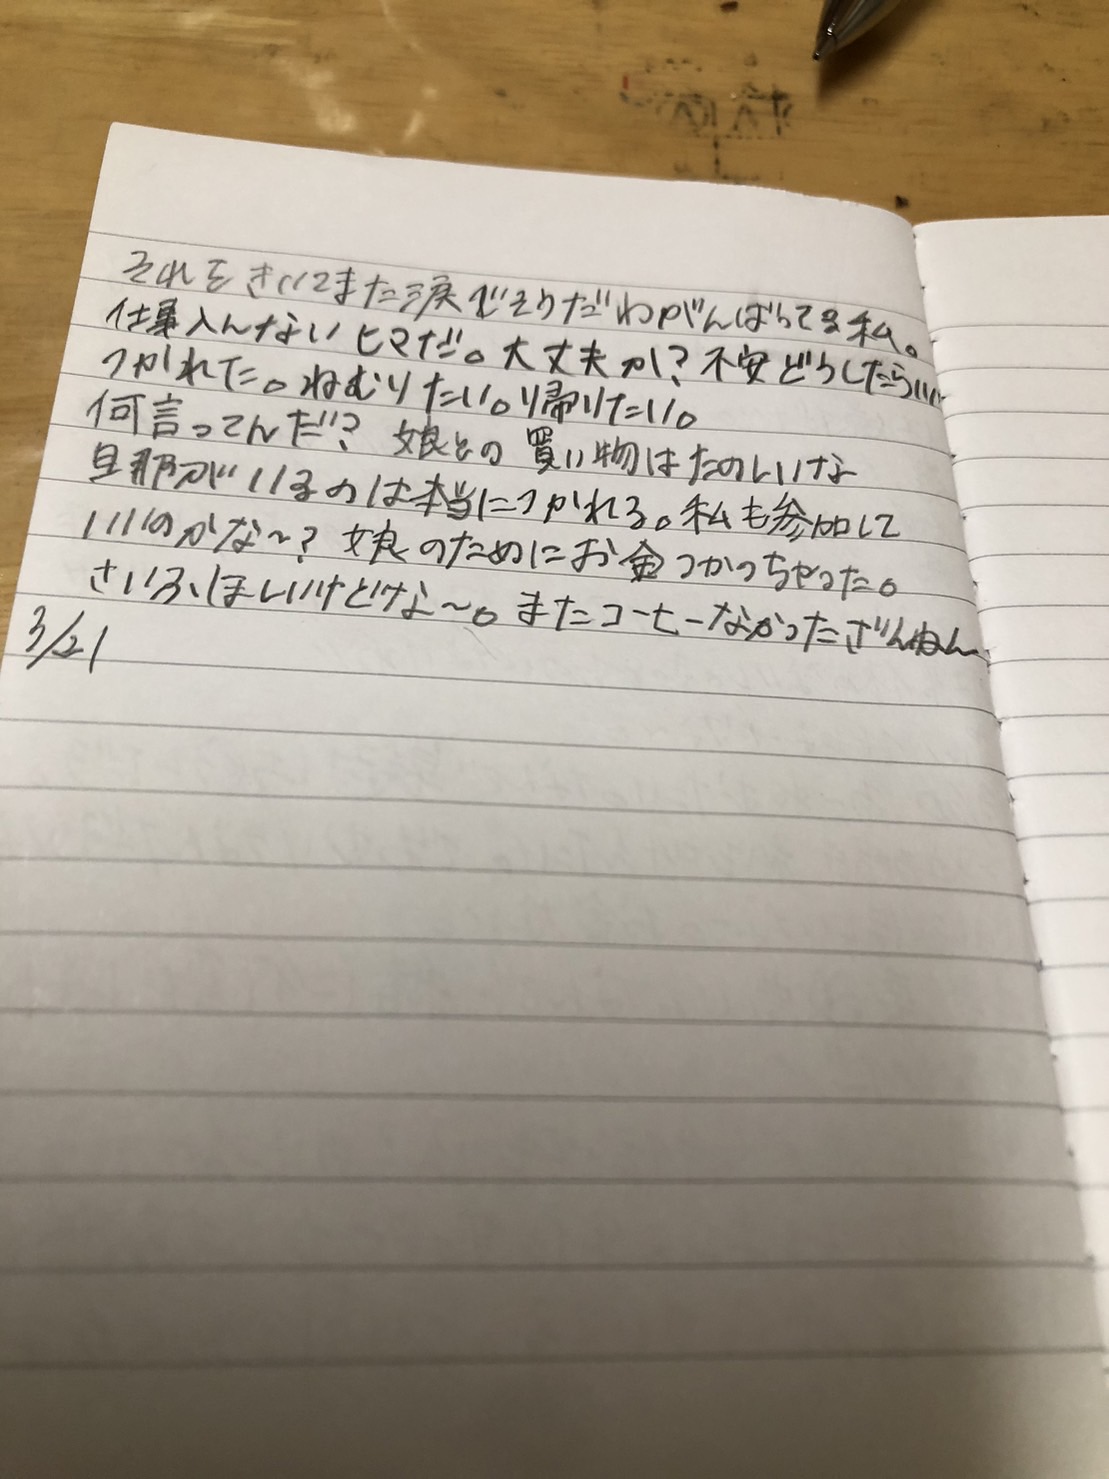 それをきいてまた涙でそうだわがんばってる私。
仕事入んないヒマだ。大丈夫か?不安どうしたらいい
つかれた。ねむりたい。帰りたい。
何言ってんだ? 娘との買い物はたのしいな
旦那がいるのは本当につかれる。私も参加して
いいのかな〜? 娘のためにお金つかっちゃった。
さいふほしいけどな〜。またコーヒーなかったざんねん
3/21